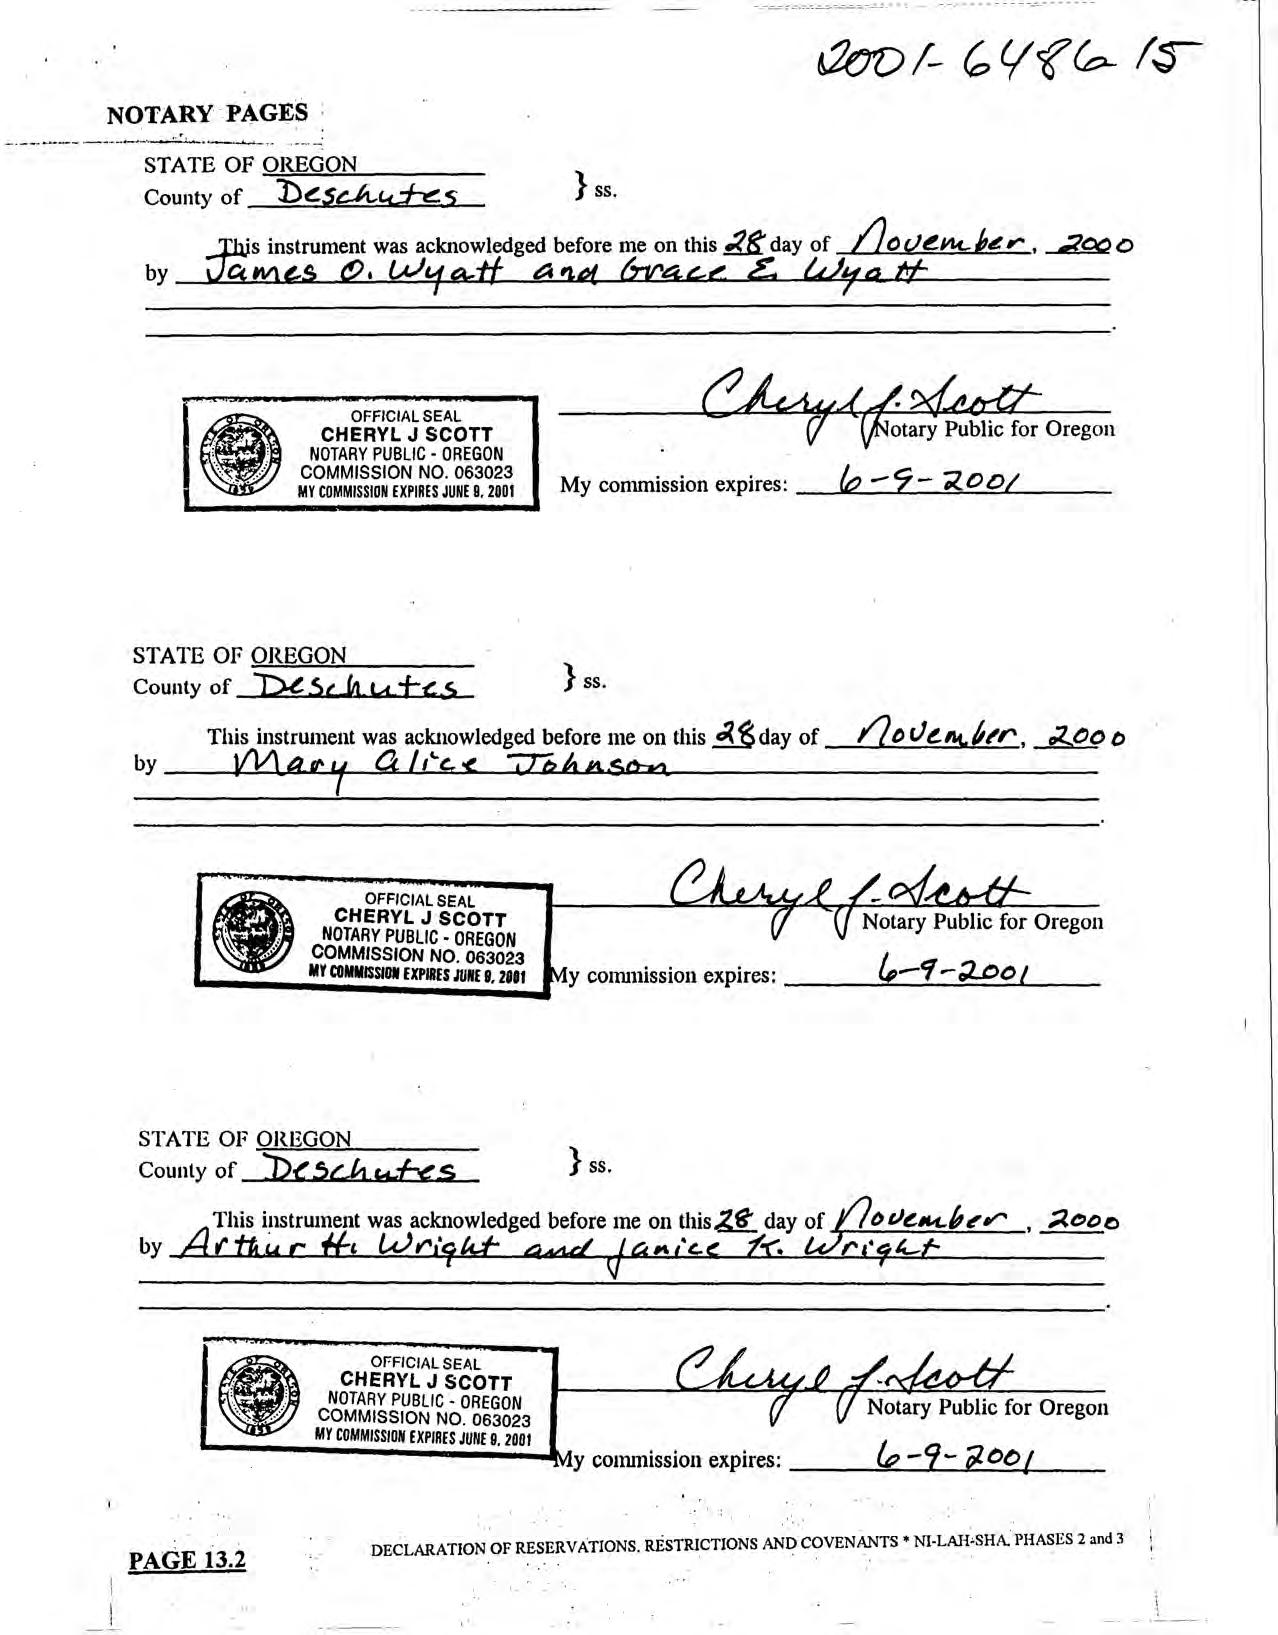 2001-6486-15
NOTARY PAGES
STATE OF OREGON
County of Deschutes } ss.
This instrument was acknowledged before me on this 28 day of November, 2000
by James O. Wyatt and Grace E. Wyatt
Cheryl J. Scott
Notary Public for Oregon
OFFICIAL SEAL
CHERYL J SCOTT
NOTARY PUBLIC - OREGON
COMMISSION NO. 063023
MY COMMISSION EXPIRES JUNE 9, 2001
My commission expires: 6-9-2001
STATE OF OREGON
County of Deschutes } ss.
This instrument was acknowledged before me on this 28 day of November, 2000
by Mary Alice Johnson
Cheryl J. Scott
Notary Public for Oregon
OFFICIAL SEAL
CHERYL J SCOTT
NOTARY PUBLIC - OREGON
COMMISSION NO. 063023
MY COMMISSION EXPIRES JUNE 9, 2001
My commission expires: 6-9-2001
STATE OF OREGON
County of Deschutes } ss.
This instrument was acknowledged before me on this 28 day of November, 2000
by Arthur H. Wright and Janice K. Wright
Cheryl J. Scott
Notary Public for Oregon
OFFICIAL SEAL
CHERYL J SCOTT
NOTARY PUBLIC - OREGON
COMMISSION NO. 063023
MY COMMISSION EXPIRES JUNE 9, 2001
My commission expires: 6-9-2001
PAGE 13.2
DECLARATION OF RESERVATIONS, RESTRICTIONS AND COVENANTS * NI-LAH-SHA, PHASES 2 and 3